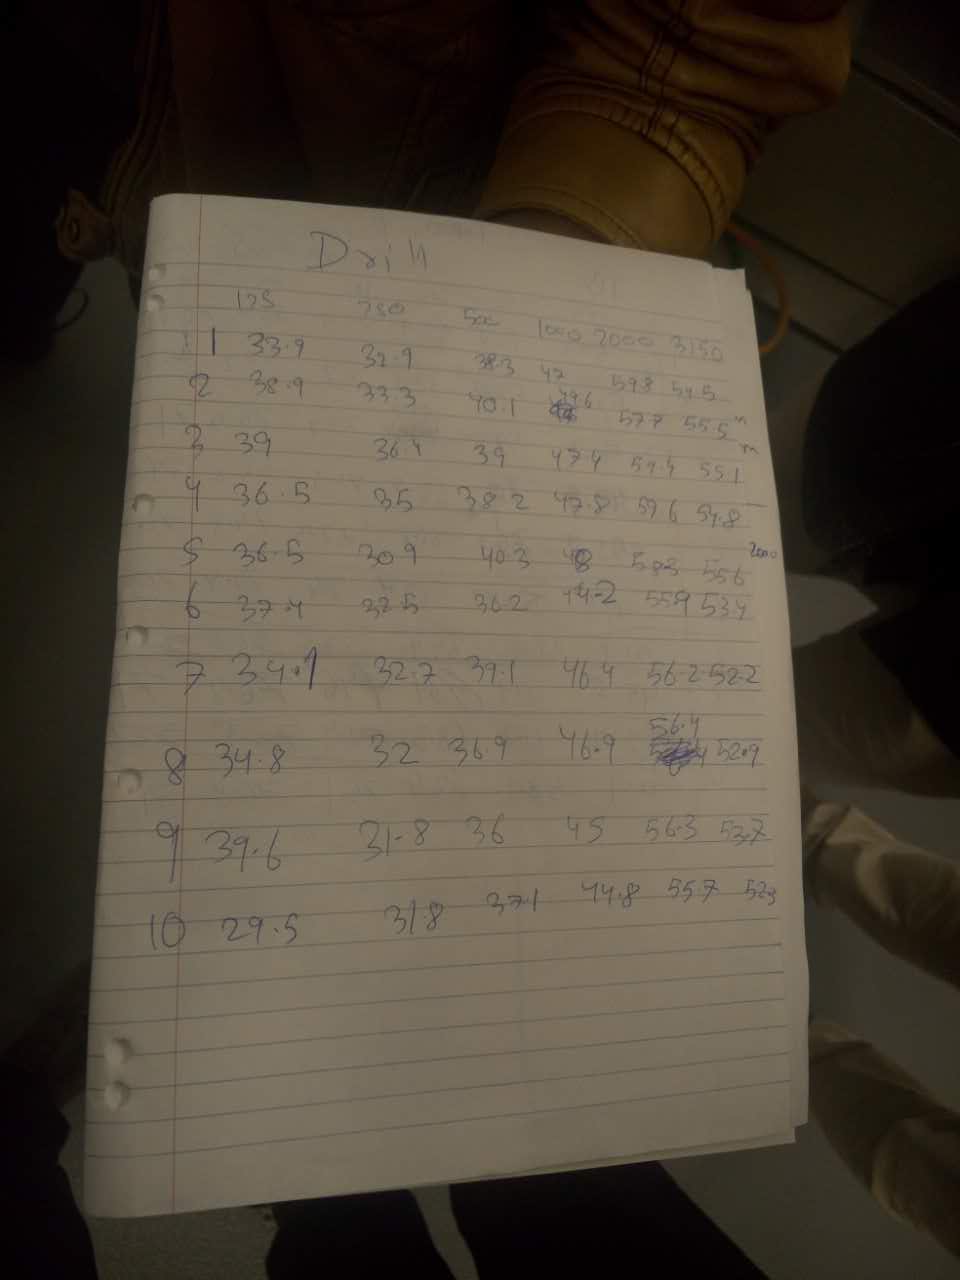 Drill
125 250 500 1000 2000 3150
1 33.9 32.9 38.3 47 59.8 54.5
2 38.9 33.3 40.1 49.6 57.7 55.5
3 39 36.4 39 47.4 59.4 55.1
4 36.5 35 38.2 47.8 59.6 54.8
5 36.5 30.9 40.3 48 55.6
6 37.4 32.5 36.2 44.2 55.9 53.4
7 34.1 32.7 39.1 46.4 56.2 52.2
8 34.8 32 36.9 46.9 56.4 52.9
9 39.6 31.8 36 45 56.3 53.7
10 29.5 31.8 37.1 44.8 55.7 52.3
2000